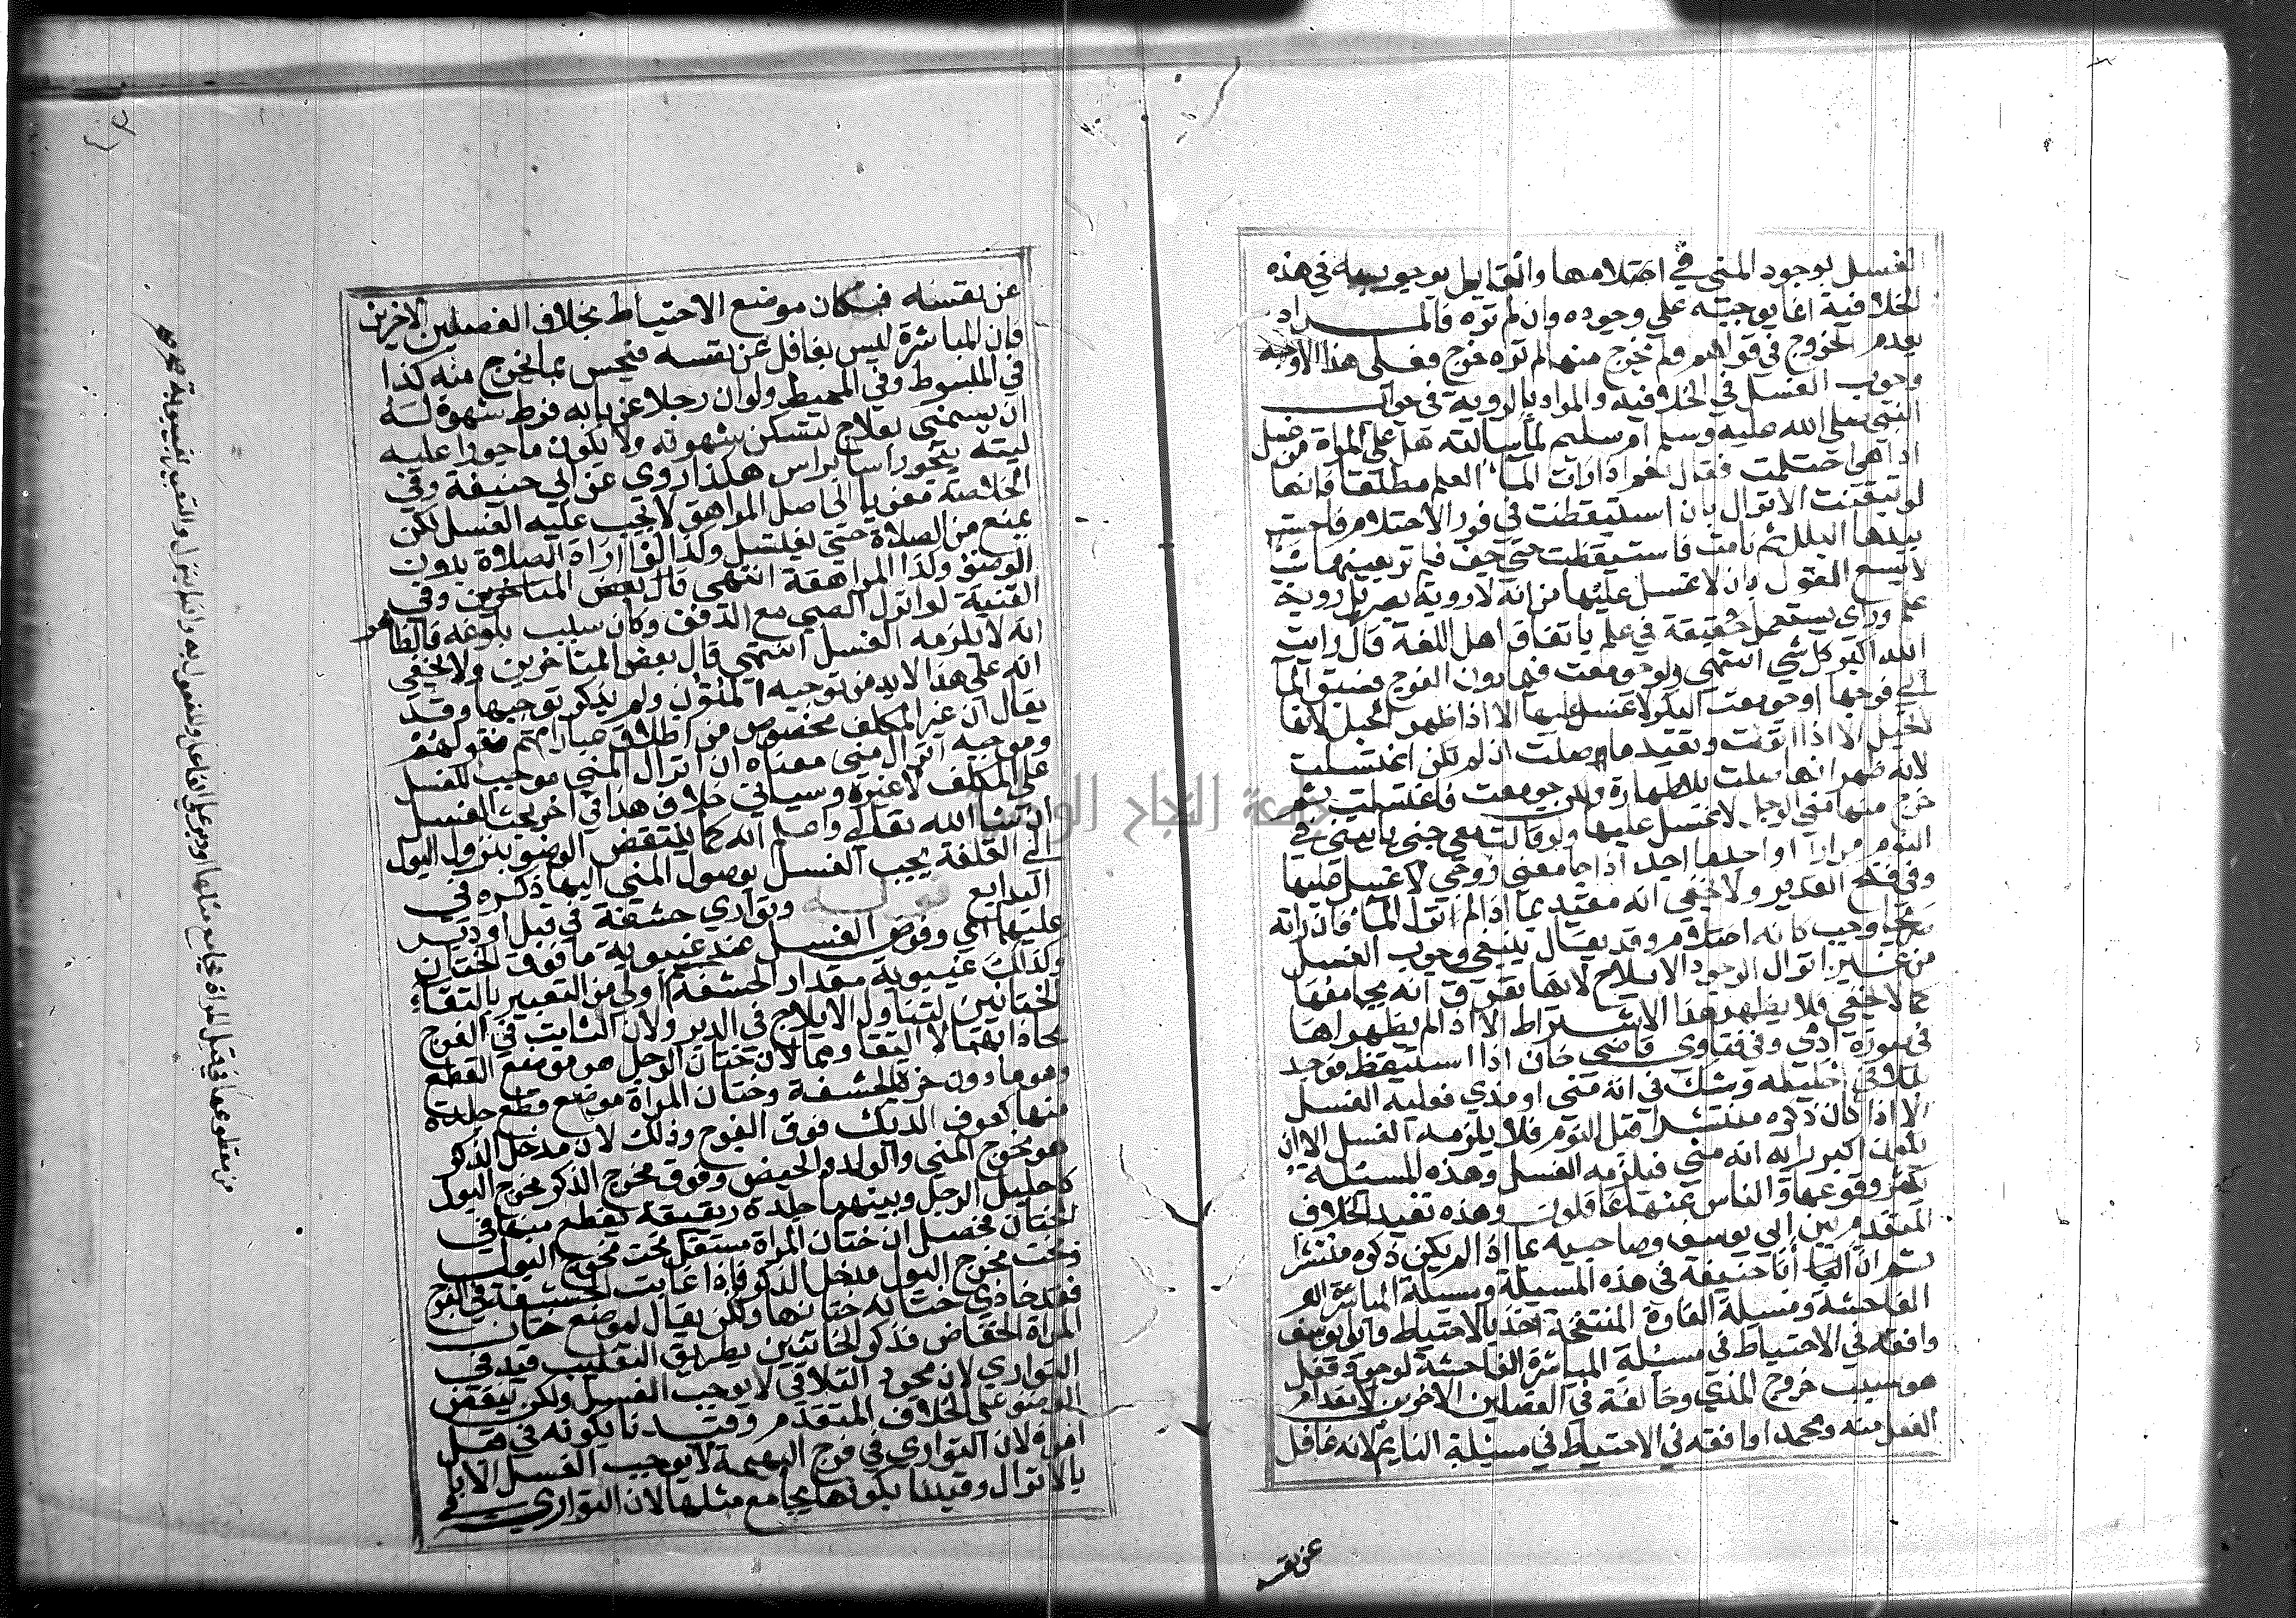 الغسل بوجود المني في احتلامها والقايل بوجوبه في هذه
الخلافية انما يوجبه علي وجوده وان لم تره فالمراد
بعدم الخروج في قولهم ولم يخرج منها لم تره خرج فعلى هذا الاوجه
وجوب الغسل في الخلافيه والمراد بالروية في جواب
النبي صلى الله عليه وسلم ام سليم لما سالته هل على المراة من غسل
اذا هي احتلمت فقال نعم اذا رات الما العلم مطلقا فانها
لو تيقنت الانزال بان استيقظت في فور الاحتلام فاحست
بيدها البلل ثم نامت فاستيقظت حتى جف فلم تر بعينها شيا
لا يسع القول بان لا غسل عليها مع انه لا روية بصر بل روية
علم وراى يستعمل حقيقة في علم باتفاق اهل اللغة قال رايت
الله اكبر كل شي انتهى ولو جومعت فيما دون الفرج فسبق الما
الي فرجها او جومعت البكر لا غسل عليها الا اذا ظهر الحبل لانها
لا تحبل الا اذا انزلت وتعيد ما صلت ان لم تكن اغتسلت
لانه ظهر انها صلت بلا طهارة ولو جومعت فاغتسلت ثم
خرج منها مني الرجل لا غسل عليها ولو قالت معي جني ياتيني في
النوم مرارا او اجد ما اجد اذا جامعني زوجي لا غسل عليها
وفي فتح القدير ولا يخفى انه مقيد بما اذا لم تنزل الما فان راته
صريحا وجب كانه احتلام وقد يقال ينبغي وجوب الغسل
من غير انزال لوجود الايلاج لانها تعرف انه يجامعها
كما لا يخفى فلا يظهر هذا الاشتراط الا اذا لم يظهر لها
في صورة ادمي وفي فتاوى قاضي خان اذا استيقظ فوجد
بللا في احليله وشك في انه مني او مذي فعليه الغسل
الا اذا كان ذكره منتشرا قبل النوم فلا يلزمه الغسل الا ان
يكون اكبر رايه انه مني فيلزمه الغسل وهذه المسئلة
يكثر وقوعها والناس عنها غافلون وهذه تقيد الخلاف
المتقدم بين ابي يوسف وصاحبيه بما اذا لم يكن ذكره منتشرا
ثم ان ابا حنيفة في هذه المسيلة ومسيلة المباشرة
الفاحشة ومسيلة الفارة المنتفخة اخذ بالاحتياط وابو يوسف
وافقه في الاحتياط في مسئلة المباشرة الفاحشة لوجود فعل
هو سبب خروج المذي وخالفه في الفصلين الاخرين لانعدام
الفعل منه ومحمد وافقه في الاحتياط في مسيلة النايم لانه غافل
عن نفسه
عن نفسه فكان موضع الاحتياط بخلاف الفصلين الاخرين
فان المباشرة ليس بغافل عن نفسه فيحس بما يخرج منه كذا
في المبسوط وفي المحيط ولو ان رجلا عزبا به فرط شهوة له
ان يستمنى بعلاج لتسكن شهوته ولا يكون ماجورا عليه
ليته ينجو راسا براس هكذا روي عن ابي حنيفة وفي
الخلاصة معزيا الى الاصل المراهق لا يجب عليه الغسل لكن
يمنع من الصلاة حتى يغتسل وكذا لو اراد الصلاة بدون
الوضو وكذا المراهقة انتهى قال بعض المتاخرين وفي
القنية لو انزل الصبي مع الدفق وكان سبب بلوغه فالظاهر
انه لا يلزمه الغسل انتهى قال بعض المتاخرين ولا يخفي
انه على هذا لا بد من توجيه المتون ولم يذكر توجيها وقد
يقال ان غير المكلف مخصوص من اطلاق عباراتهم فقولهم
وموجبه انزال مني معناه ان انزال المني موجب للغسل
على المكلف لا غيره وسياتي خلاف هذا في اخر بحث الغسل
ان شا الله تعالي واعلم انه كما ينتقض الوضو بنزول البول
الى القلفة يجب الغسل بوصول المني اليها ذكره في
البدايع قوله وتواري حشفة في قبل او دبر
عليهما اي وفرض الغسل عند غيبوبة ما فوق الختان
وكذلك غيبوبة مقدار الحشفة اولى من التعبير بالتقاء
الختانين لتناول الايلاج في الدبر ولان الثابت في الفرج
محاذاتهما لا التقاوهما لان ختان الرجل هو موضع القطع
وهو ما دون حزة الحشفة وختان المراة موضع قطع جلدة
منها كعرف الديك فوق الفرج وذلك لان مدخل الذكر
هو مخرج المني والولد والحيض وفوق مخرج الذكر مخرج البول
كاحليل الرجل وبينهما جلدة رقيقة يقطع منها في
الختان فحصل ان ختان المراة مستقل تحت مخرج البول
وتحت مخرج البول مدخل الذكر فاذا غابت الحشفة في الفرج
فقد حاذى ختانه ختانها ولكن يقال لموضع ختان
المراة الخفاض فذكر الختانين بطريق التغليب قيد في
التواري لان مجرد التلاقي لا يوجب الغسل ولكن ينقض
الوضو على الخلاف المتقدم وقيدنا بكونه في قبل
امراة لان التواري في فرج البهيمة لا يوجب الغسل الا
بالانزال وقيدنا بكونها يجامع مثلها لان التواري في